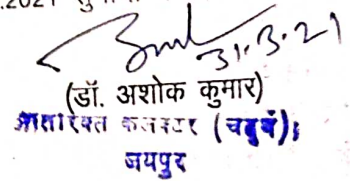 .2021
31.3.21
(डॉ. अशोक कुमार)
अतिरिक्त कलक्टर (चतुर्थ),
जयपुर